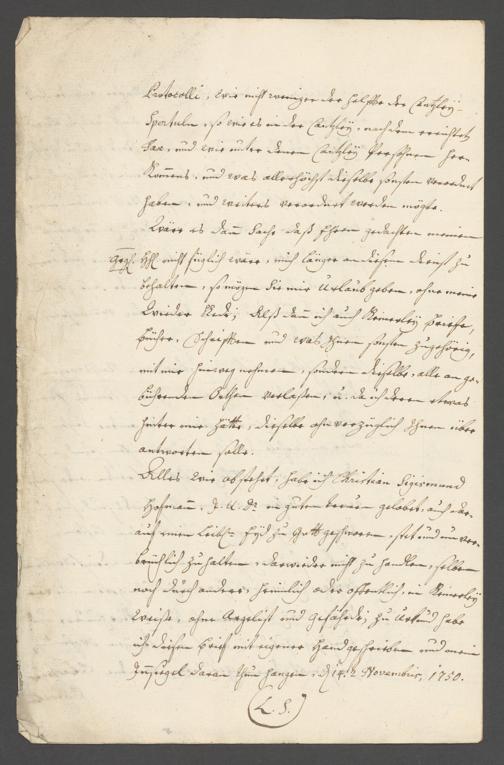 Protocolli, wie nicht weniger der helffte der Cantzley-
Sportuln, so wie es in der Cantzley, nach dem errichteten
Tax, und wie unter denen Cantzley Persohnen Her-
kommens, und was allerhöchst dieselbe sonsten verordnet
haben, und weiters verordnet werden mögte.
Wäre es dann Sache daß Ihren gedachten meinem
gdgst. H. nicht füglich wäre, mich länger an diesem dienst zu
behalten, so mögen Sie mir Urlaub geben, ohne meine
Wieder Rede; Alß dann ich auch Keinerley Briefe,
Bücher, Schrifften und was Ihnen sonsten zugehörig,
mit mir hinweg nehmen, sondern dieselbe alle an ge-
bührenden Orthen verlassen, u. da ich deren etwas
hinter mir hätte, dieselbe ohnverzüglich Ihnen über
antworten solle.
Alles wie obstehet, habe ich Christian Sigismund
Hofmann, J. U. Dr. in guten treuen gelobet, auch dar-
auf einen Leibl. Eyd zu Gott geschworen, stet und unver-
brüchlich zu halten, darwieder nicht zu handlen, selbsten
noch durch andere, heimlich oder offentlich, in Keinerley
Weise, ohne Argelist und Gefährde; zu Urkund habe
ich diesen Brief mit eigener Hand geschrieben und mein
Innsiegel daran thun hangen, d. 14. Novembris, 1750.
(L. S.)